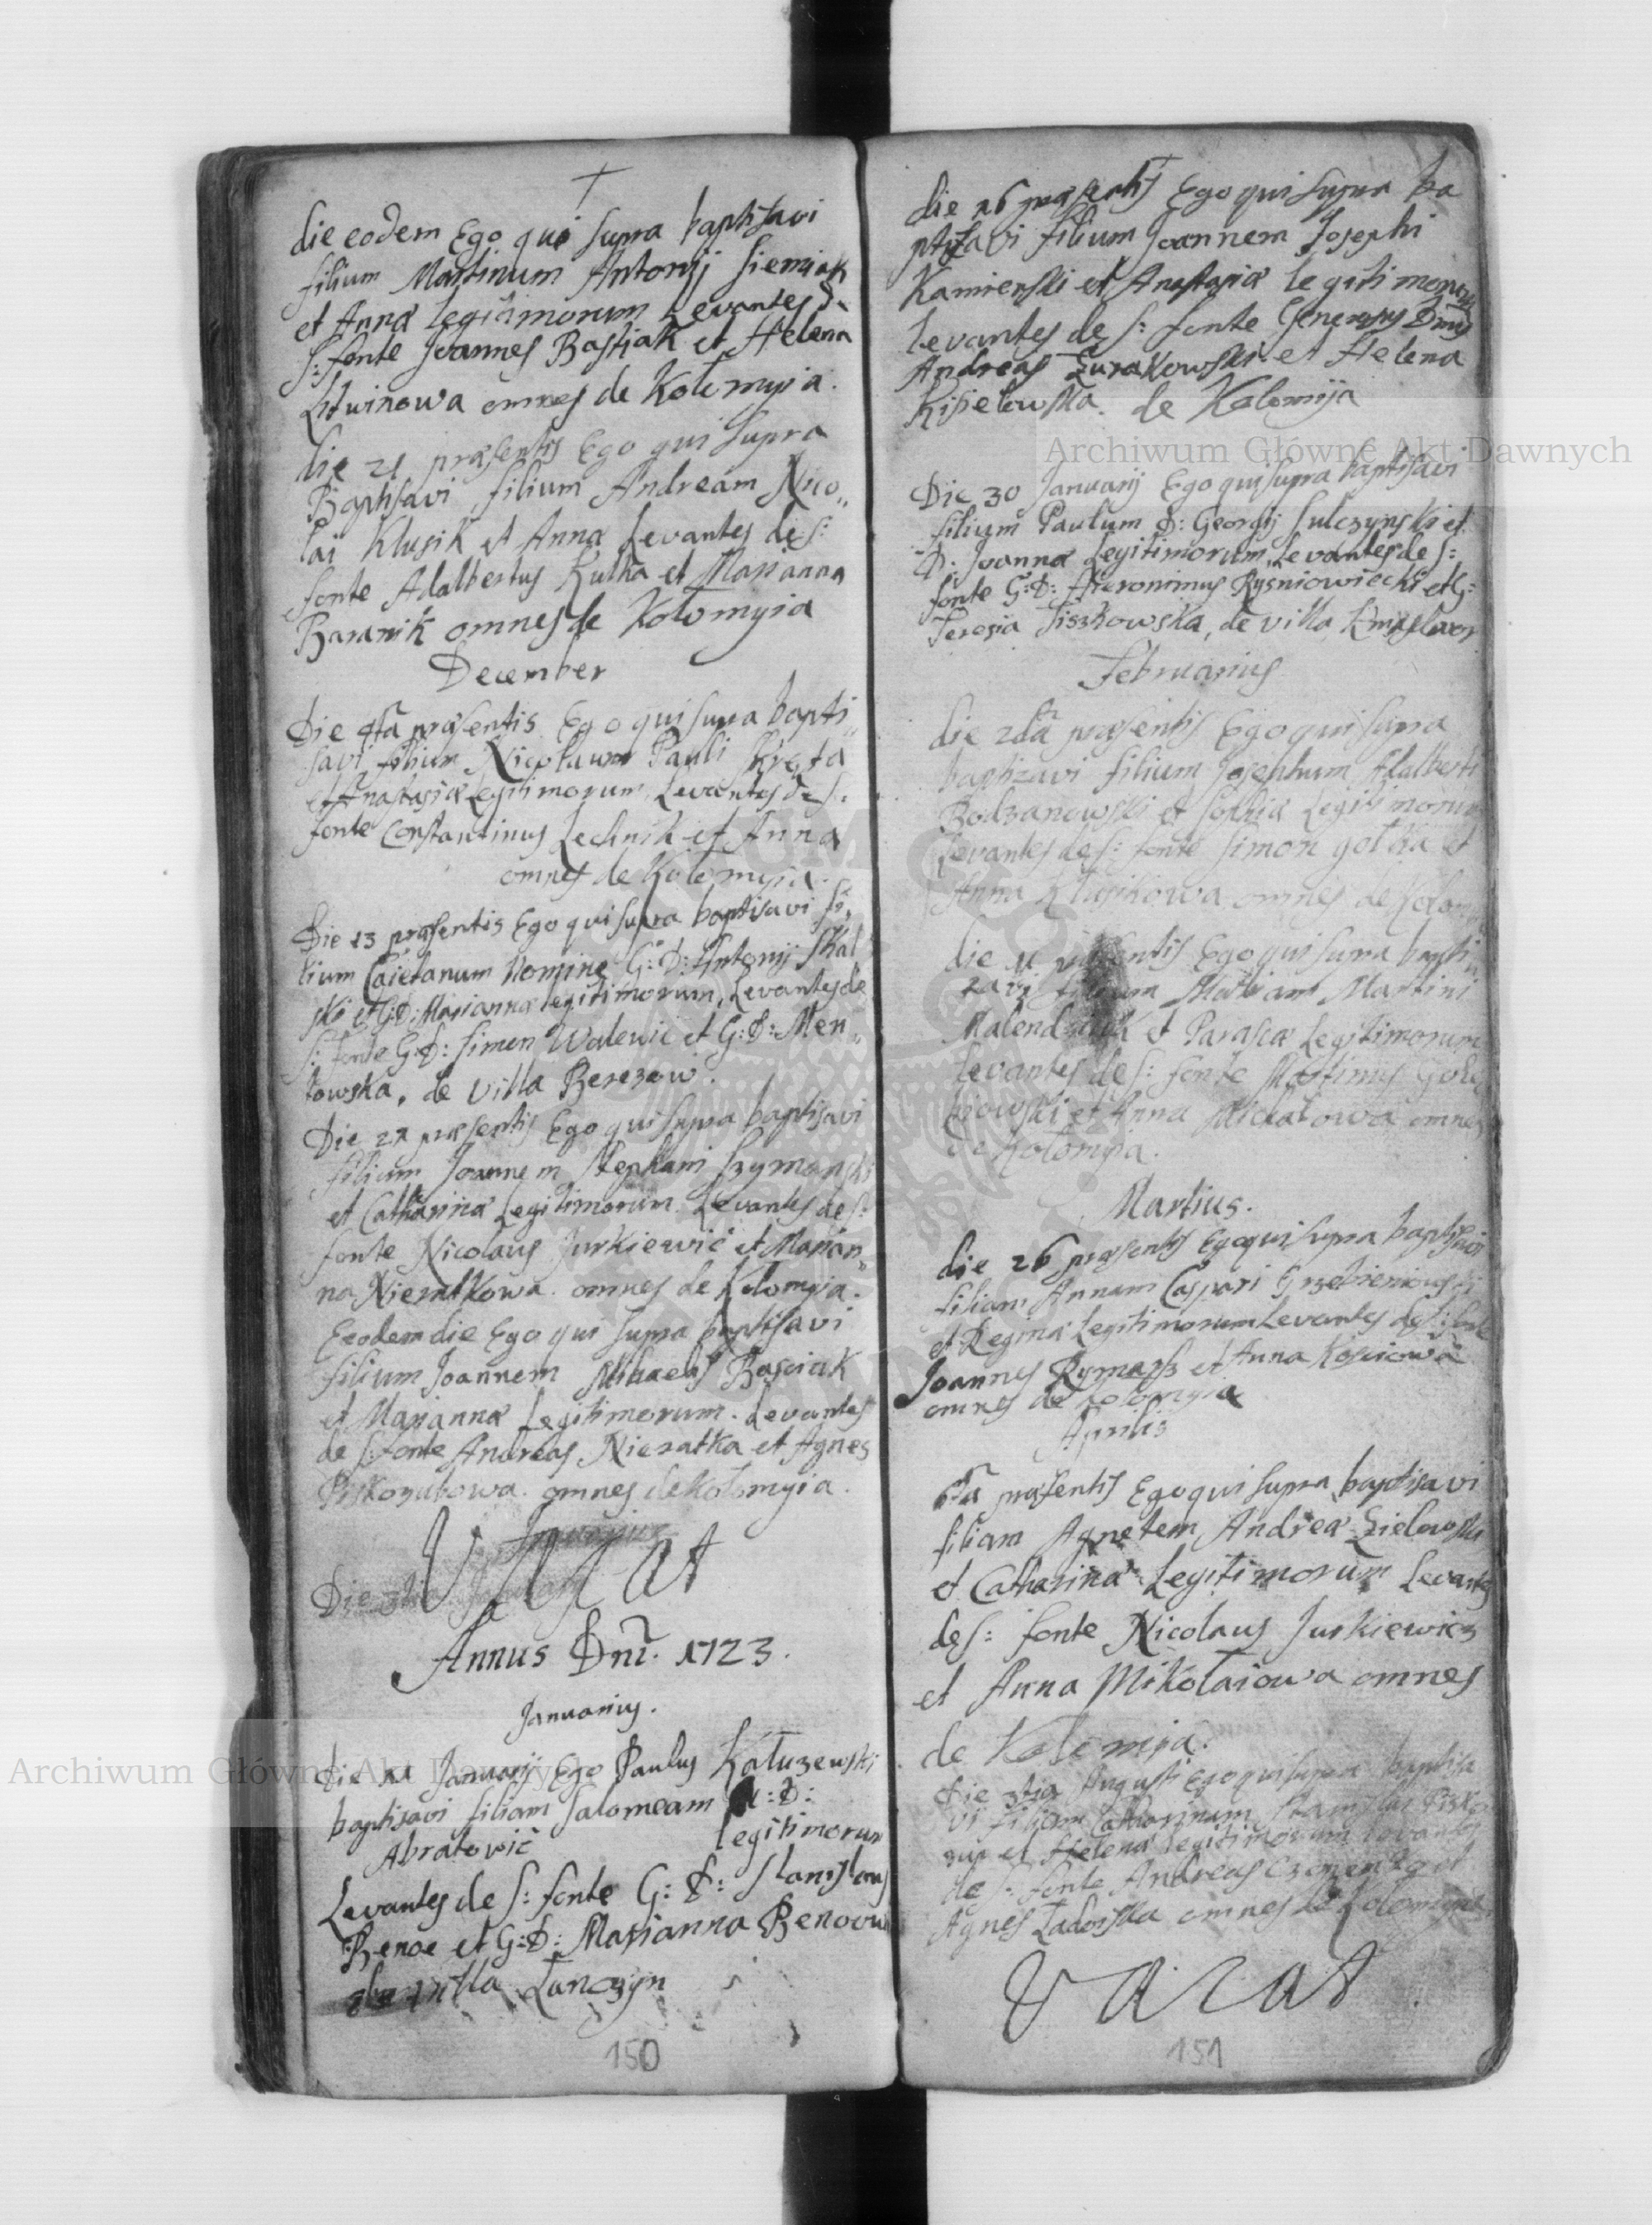 die eodem Ego qui supra baptisavi
filium Martinum Antonij Siemiak
et Annæ legitimorum Levantes de
S: fonte Joannes Bastiak et Helena
Litwinowa omnes de Kołomyia.
die 21 præsentis Ego qui supra
Baptisavi filium Andream Nico„
lai Klusik et Anna Levantes de S:
fonte Adalbertus Kulha et Marianna
Baranik omnes de Kołomyia
December
Die 4ta præsentis Ego qui supra bapti„
savi filium Nicolaum Pauli Kręta
et Anastasiæ Legitimorum Levantes de S:
fonte Constantinus Lechnik et Anna
omnes de Kołomyia.
Die 13 præsentis Ego qui supra baptisavi fi„
lium Caietanum Nomine G: D: Antonij Skal
ski et G:D: Mariannæ legitimorum, Levantes de
S: fonte G:D: Simon Walewic et G:D: Men„
towska, de Villa Berezow.
Die 27 præsentis Ego qui supra baptisavi
filium Joannem Stephani Szymanski
et Catharinæ Legitimorum Levantes de S:
fonte Nicolaus Jurkiewic et Marian„
na Nieratkowa. omnes de Kołomyia.
Eeodem die Ego qui supra baptisavi
filium Joannem Mihaelis Basciak
et Mariannæ Legitimorum. Levantes
de S: fonte Andreas Nieratka et Agnes
Piskozubowa. omnes de Kołomyia.
Januarius
Vacat
Die 3tia Januarij
Annus Dni. 1723.
Januarius.
die 11 Januarij Ego Paulus Kałuzewski
baptisavi filiam Salomeam :D:
Abratowic legitimorum
Levantes de S: fonte G: D: Stanislaus
Benoe et G:D: Marianna Benoowa
de villa Łanczyn
150
die 16 præsentis Ego qui supra ba
ptizavi filium Joannem Josephi
Kamienski et Anastasiæ legitimorum
levantes de S: fonte Generosus Dnus
Andreas Żurakowski et Helena
Kisielewska. de Kolomija
Die 30 Januarij Ego qui supra baptisavi
filium Paulum D: Georgij Sulczynski et
D: Joannæ Legitimorum, Levantes de S:
fonte G:D: Hieronimus Rysniowiecki et G:
Teresia Tiszkowska, de villa
Februarius
die 2da præsentis Ego qui supra
baptizavi filium Josephum Adalberti
Bodzanowski et Sophiæ Legitimorum
Levantes de S: fonte Simon et
Anna Klusikowa omnes de Kolom
die 11 præsentis Ego qui supra bapti„
zavi filium Mathiam Martini
Kalend et Parascæ Legitimorum
Levantes de S: fonte Martinus Golu
biowski et Anna Michałowa omnes
de Kołomyia.
Martius.
die 26 præsentis Ego qui supra baptisavi
filiam Annam Caspari Grzebieniowski
et Reginæ Legitimorum Levantes de S: fonte
Joannes Rymarz et Anna Kosciowa
omnes de Kolomyia
Aprilis
6ta præsentis Ego qui supra baptisavi
filiam Agnetem Andreæ Zielowski
et Catharinæ Legitimorum Levantes
de S: fonte Nicolaus Jurkiewicz
et Anna Mikołaiowa omnes
de Kolomia.
Die 3tia Augusti Ego qui supra baptisa
vi filiam Catharinam Stanislai Pisko
zup et Helenæ legitimorum levantes
de S: fonte Andreas et
Agnes Ładoiska omnes de Kolomyia
Vacat
151
Archiwum Główne Akt Dawnych
Archiwum Główne Akt Dawnych